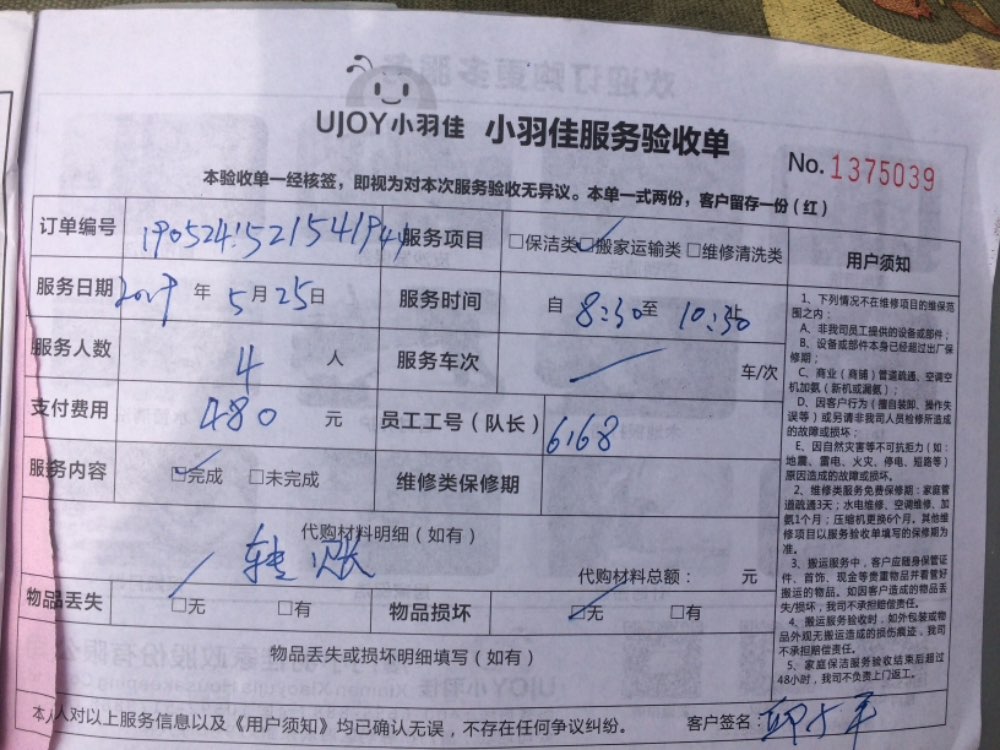 UJOY小羽佳 小羽佳服务验收单
No. 1375039
本验收单一经核签，即视为对本次服务验收无异议。本单一式两份，客户留存一份（红）
订单编号 服务项目 □保洁类 □搬家运输类 □维修清洗类
服务日期 2019 年 5 月 25 日 服务时间 自 8:30 至 10:30
服务人数 4 人 服务车次 车/次
支付费用 480 元 员工工号（队长） 6168
服务内容 □完成 □未完成 维修类保修期
代购材料明细（如有）
转账
代购材料总额： 元
物品丢失 □无 □有 物品损坏 □无 □有
物品丢失或损坏明细填写（如有）
用户须知
1、下列情况不在维修项目的维保范
围之内：
A、非我司员工提供的设备或部件；
B、设备或部件本身已经超过出厂保
修期；
C、商业（商铺）管道疏通、空调空
机加氨（新机或漏氨）；
D、因客户行为（擅自装卸、操作失
误等）或另请非我司人员检修所造成
的故障或损坏；
E、因自然灾害等不可抗拒力（如：
地震、雷电、火灾、停电、短路等）
原因造成的故障或损坏。
2、维修类服务免费保修期：家庭管
道疏通3天；水电维修、空调维修、加
氨1个月；压缩机更换6个月。其他维
修项目以服务验收单填写的保修期为
准。
3、搬运服务中，客户应随身保管证
件、首饰、现金等贵重物品并看管好
搬运的物品。如因客户造成的物品丢
失/损坏，我司不承担赔偿责任。
4、搬运服务验收时，如外包装或物
品外观无搬运造成的损伤痕迹，我司
不承担赔偿责任。
5、家庭保洁服务验收结束后超过
48小时，我司不负责上门返工。
本人对以上服务信息以及《用户须知》均已确认无误，不存在任何争议纠纷。 客户签名：